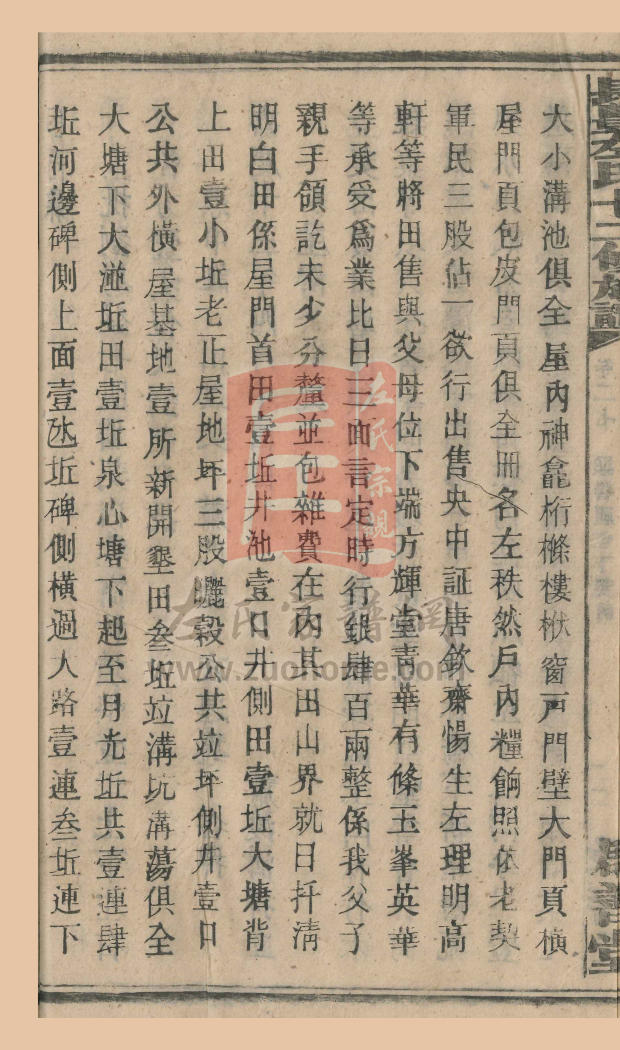 大小溝池俱全屋內神龕桁條樓栿窗戶門壁大門頁槓
屋門頁包皮門頁俱全冊名左秩然戶內糧餉照依老契
軍民三股佔一欲行出售央中証唐欽齋惕生左理明高
軒等將田售與父母位下端方輝堂青華有條玉峯英華
等承受爲業比日三面言定時行銀肆百兩整係我父子
親手領訖未少分釐並包雜費在內其田山界就日扦清
明白田係屋門首田壹坵井池壹口井側田壹坵大塘背
上田壹小坵老正屋地坪三股曬穀公共竝坪側井壹口
公共外橫屋基地壹所新開墾田叁坵竝溝坑溝蕩俱全
大塘下大坵田壹坵泉心塘下起至月光坵共壹連肆
坵河邊碑側上面壹坵碑側橫過人路壹連叁坵連下
左氏十二修族譜
堂
左氏宗親
左氏家譜網
www.zuohome.com